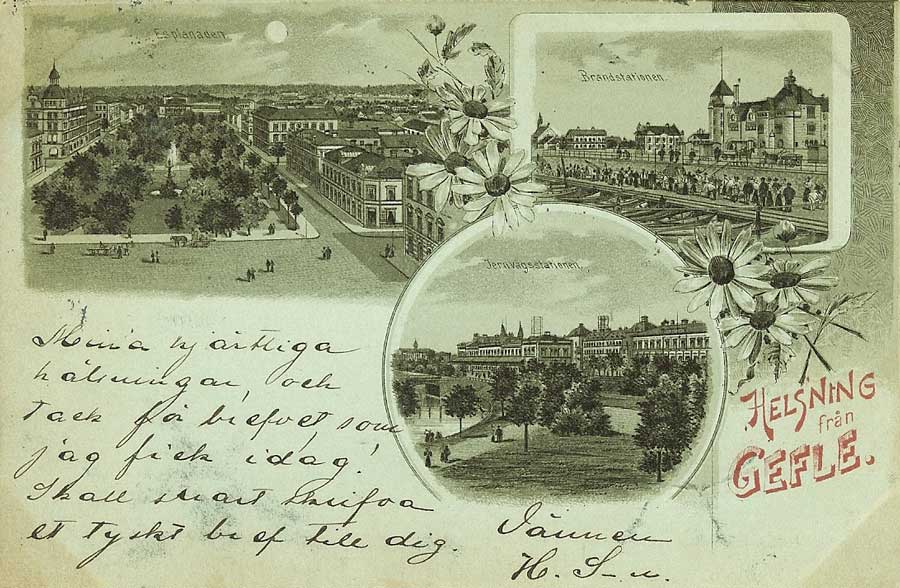 Esplanaden
Brandstationen.
Jernvägsstationen.
HELSNING
från
GEFLE.
Mina hjärtliga
hälsningar, och
tack för brefvet som
jag fick idag!
Skall snart skrifva
et tyskt bref till dig.
Vännen
H. S-n.